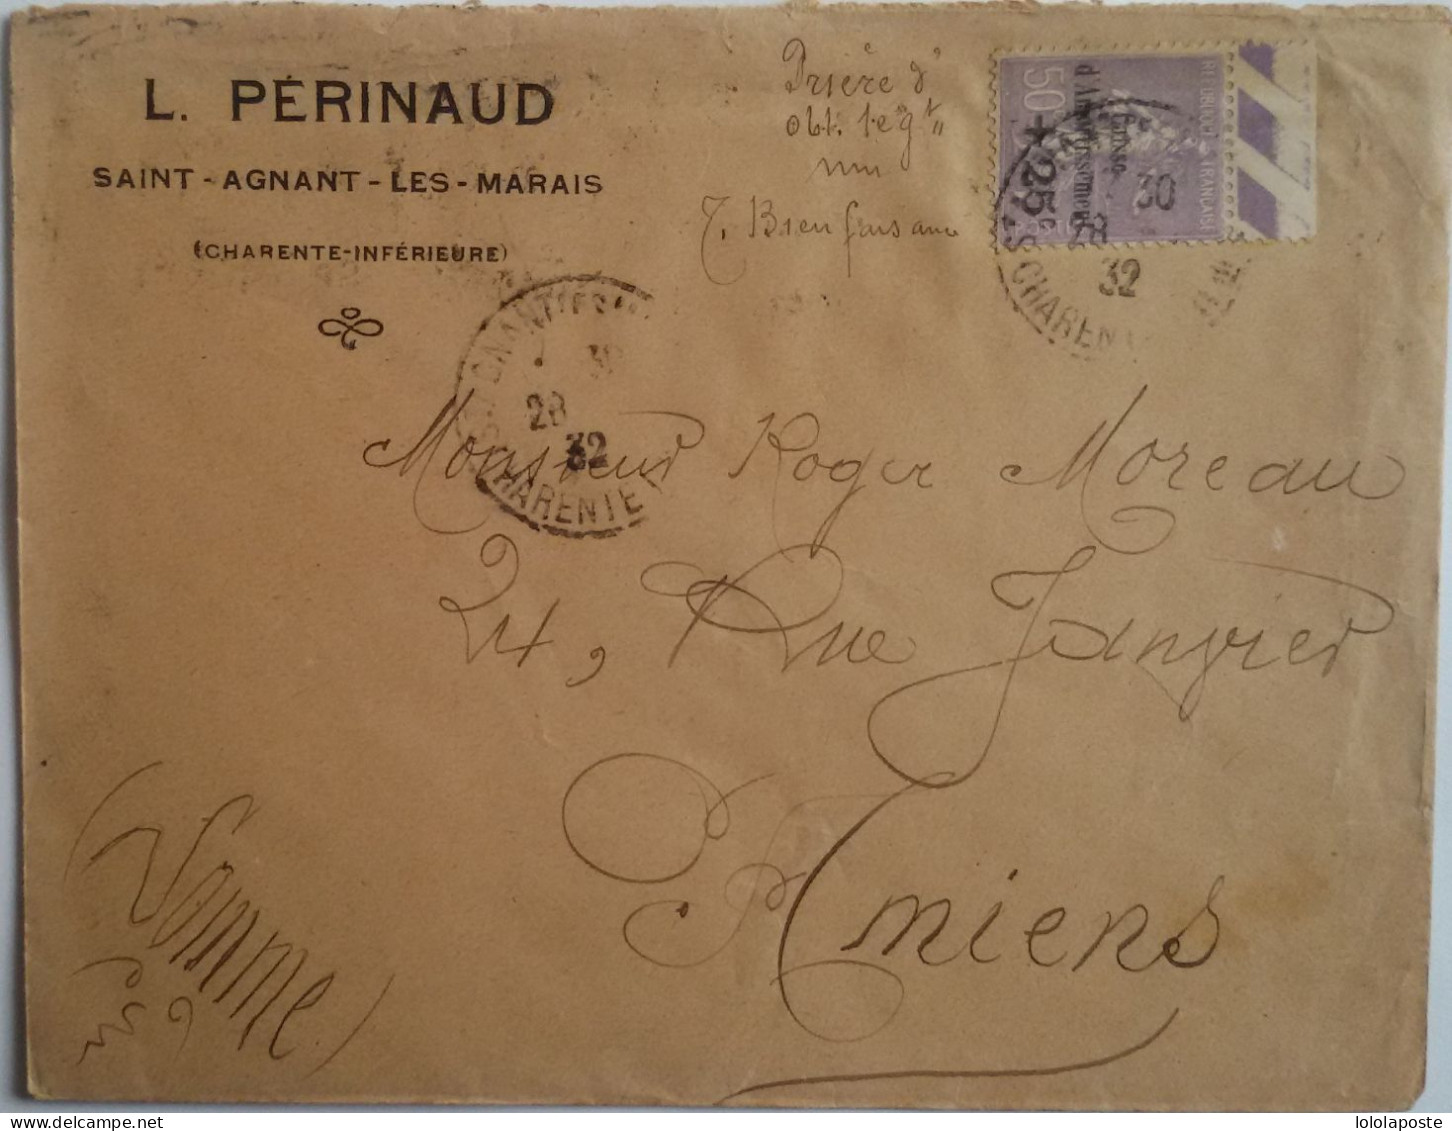 L. PÉRINAUD
SAINT-AGNANT-LES-MARAIS
(CHARENTE-INFÉRIEURE)
Prière d'
obt. legt
T. Bienfaisance
RÉPUBLIQUE FRANÇAISE
Caisse
d'Amortissement
50
+25c
30
28
32
CHARENTE
30
28
32
CHARENTE
Monsieur Roger Moreau
24, Rue Janvier
Amiens
(Somme)
lololaposte